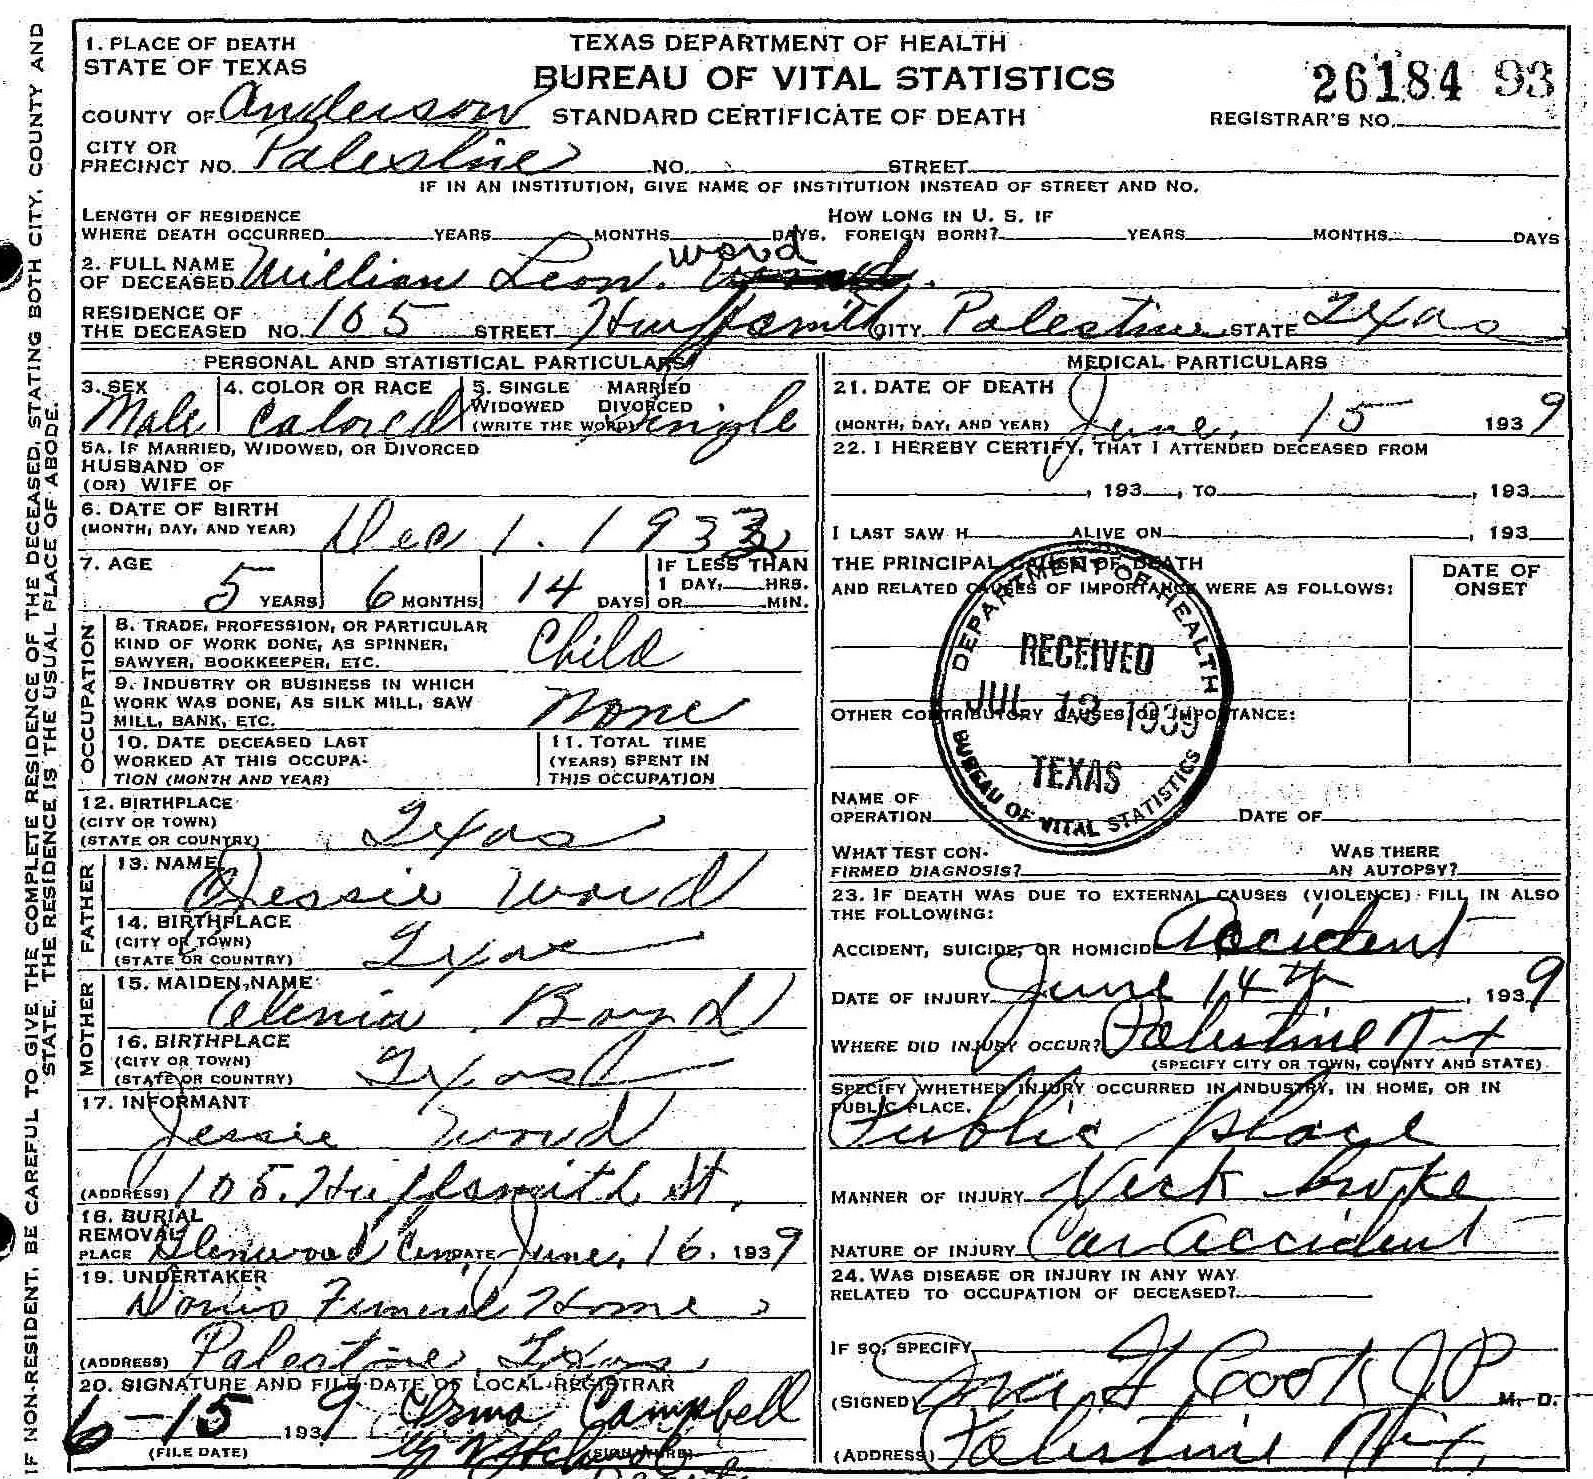 IF NON-RESIDENT, BE CAREFUL TO GIVE THE COMPLETE RESIDENCE OF THE DECEASED, STATING BOTH CITY, COUNTY AND
STATE. THE RESIDENCE IS THE USUAL PLACE OF ABODE.
1. PLACE OF DEATH
STATE OF TEXAS
TEXAS DEPARTMENT OF HEALTH
BUREAU OF VITAL STATISTICS
STANDARD CERTIFICATE OF DEATH
26184 93
REGISTRAR'S NO.
COUNTY OF Anderson
CITY OR
PRECINCT NO. Palestine NO. STREET
IF IN AN INSTITUTION, GIVE NAME OF INSTITUTION INSTEAD OF STREET AND NO.
LENGTH OF RESIDENCE
WHERE DEATH OCCURRED YEARS MONTHS DAYS.
HOW LONG IN U. S. IF
FOREIGN BORN? YEARS MONTHS DAYS
2. FULL NAME
OF DECEASED William Leon. Word
RESIDENCE OF
THE DECEASED NO. 105 STREET Huffsmith CITY Palestine STATE Texas
PERSONAL AND STATISTICAL PARTICULARS
3. SEX
Male
4. COLOR OR RACE
Colored
5. SINGLE MARRIED
WIDOWED DIVORCED
(WRITE THE WORD) Single
5A. IF MARRIED, WIDOWED, OR DIVORCED
HUSBAND OF
(OR) WIFE OF
6. DATE OF BIRTH
(MONTH, DAY, AND YEAR) Dec 1. 1933
7. AGE
5 YEARS 6 MONTHS 14 DAYS
IF LESS THAN
1 DAY, HRS.
OR MIN.
OCCUPATION
8. TRADE, PROFESSION, OR PARTICULAR
KIND OF WORK DONE, AS SPINNER,
SAWYER, BOOKKEEPER, ETC.
Child
9. INDUSTRY OR BUSINESS IN WHICH
WORK WAS DONE, AS SILK MILL, SAW
MILL, BANK, ETC.
None
10. DATE DECEASED LAST
WORKED AT THIS OCCUPA-
TION (MONTH AND YEAR)
11. TOTAL TIME
(YEARS) SPENT IN
THIS OCCUPATION
12. BIRTHPLACE
(CITY OR TOWN)
(STATE OR COUNTRY) Texas
FATHER
13. NAME
Jessie Word
14. BIRTHPLACE
(CITY OR TOWN)
(STATE OR COUNTRY) Texas
MOTHER
15. MAIDEN NAME
Elenia Boyd
16. BIRTHPLACE
(CITY OR TOWN)
(STATE OR COUNTRY) Texas
17. INFORMANT
Jessie Word
(ADDRESS) 105. Huffsmith St.
18. BURIAL
REMOVAL
PLACE Glenwood Cem, DATE June, 16. 1939
19. UNDERTAKER
Funeral Home
(ADDRESS) Palestine, Texas
20. SIGNATURE AND FILE DATE OF LOCAL REGISTRAR
6-15 1939 Campbell
(FILE DATE) (SIGNATURE)
MEDICAL PARTICULARS
21. DATE OF DEATH
(MONTH, DAY, AND YEAR) June, 15 1939
22. I HEREBY CERTIFY, THAT I ATTENDED DECEASED FROM
, 193 , TO , 193
I LAST SAW H ALIVE ON , 193
THE PRINCIPAL CAUSE OF DEATH
AND RELATED CAUSES OF IMPORTANCE WERE AS FOLLOWS:
DATE OF
ONSET
DEPARTMENT OF HEALTH
RECEIVED
JUL 13 1939
TEXAS
BUREAU OF VITAL STATISTICS
OTHER CONTRIBUTORY CAUSES OF IMPORTANCE:
NAME OF
OPERATION DATE OF
WHAT TEST CON-
FIRMED DIAGNOSIS?
WAS THERE
AN AUTOPSY?
23. IF DEATH WAS DUE TO EXTERNAL CAUSES (VIOLENCE) FILL IN ALSO
THE FOLLOWING:
ACCIDENT, SUICIDE, OR HOMICIDE Accident
DATE OF INJURY June 14th, 1939
WHERE DID INJURY OCCUR? Palestine Tex
(SPECIFY CITY OR TOWN, COUNTY AND STATE)
SPECIFY WHETHER INJURY OCCURRED IN INDUSTRY, IN HOME, OR IN
PUBLIC PLACE.
Public place
MANNER OF INJURY Neck broke
NATURE OF INJURY Car Accident
24. WAS DISEASE OR INJURY IN ANY WAY
RELATED TO OCCUPATION OF DECEASED?
IF SO, SPECIFY
(SIGNED) Cook JP M. D.
(ADDRESS) Palestine Tex